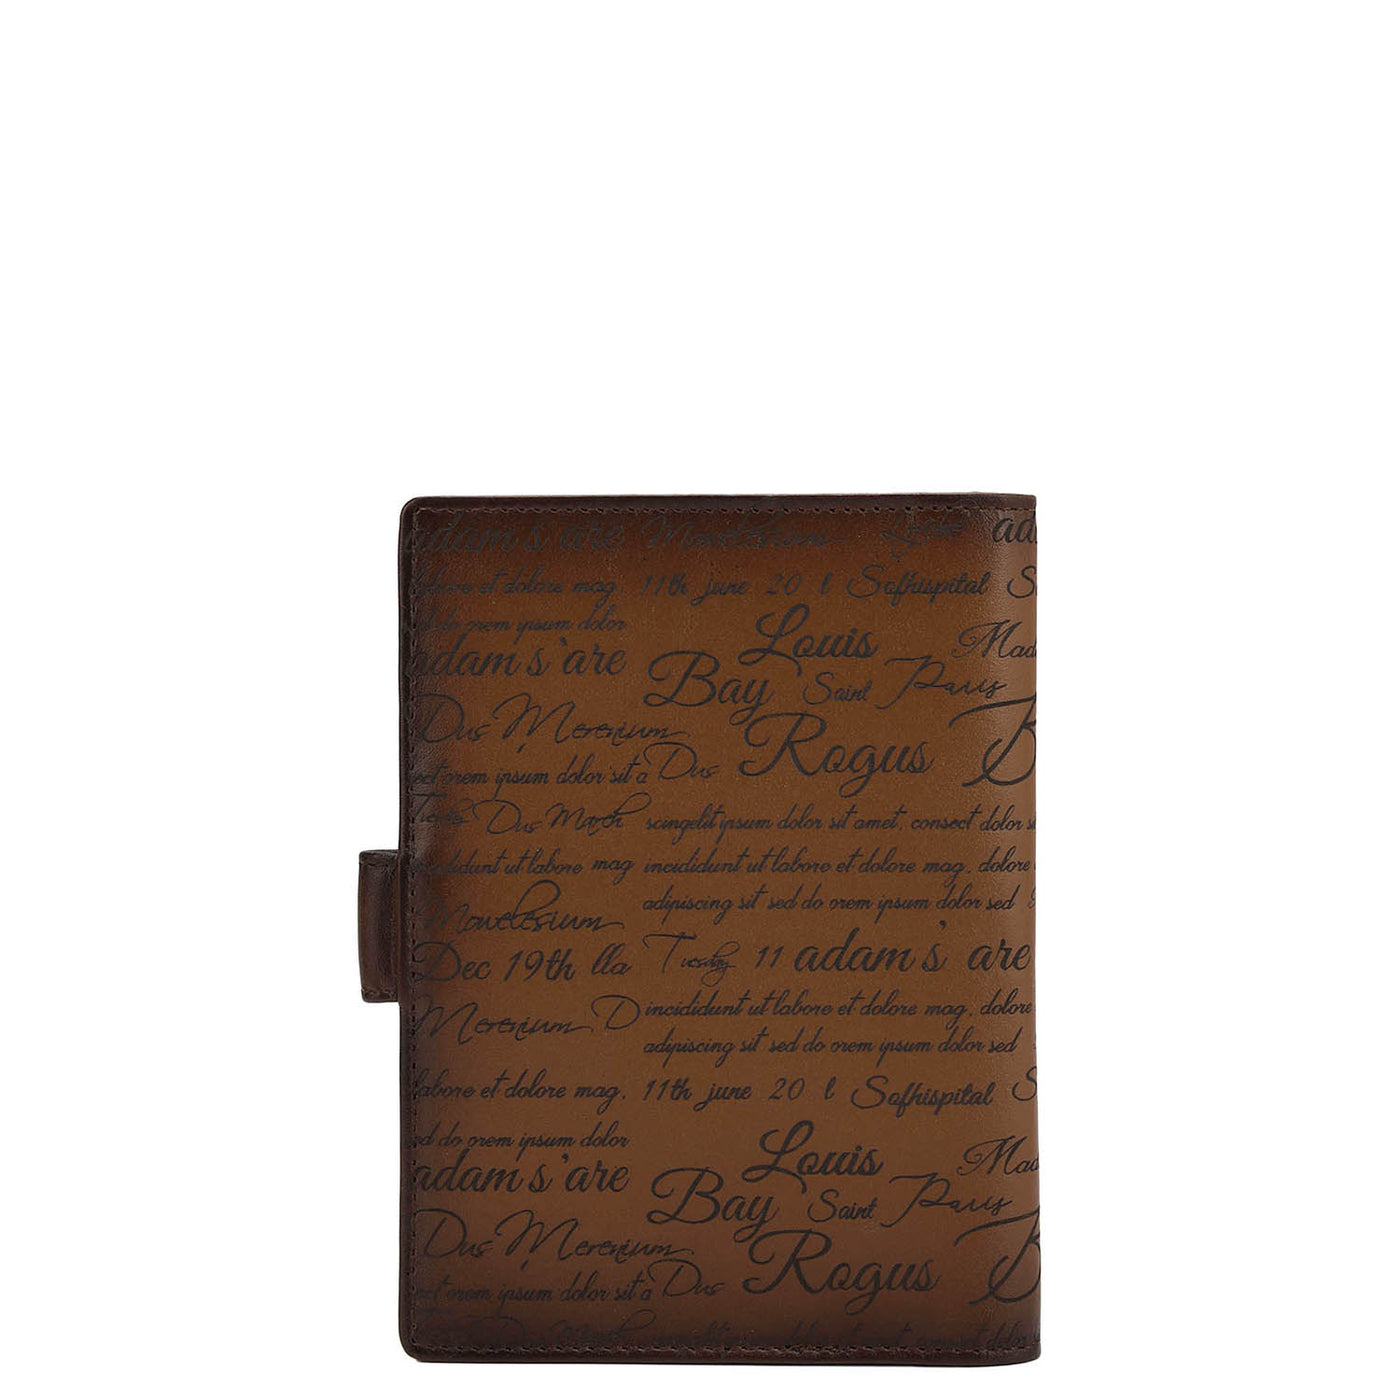 adam's are Mowelesium
labore et dolore mag, 11th june 20 l Safhispital S
d do orem ipsum dolor
Louis
adam's 'are Mad
Bay Saint Paris
Dus Merenium Rogus B
ect orem ipsum dolor sit a Dus
Dus March scingelit ipsum dolor sit amet, consect dolor s
incididunt ut labore mag incididunt ut labore et dolore mag, dolore
adipiscing sit sed do orem ipsum dolor sed
Mowelesium
Dec 19th lla Tuesday 11 adam's' are
Merenium D incididunt ut labore et dolore mag, dolore
adipiscing sit sed do orem ipsum dolor sed
labore et dolore mag, 11th june 20 l Safhispital S
d do orem ipsum dolor
Louis
adam's 'are Mad
Bay Saint Paris
Dus Merenium Rogus B
ect orem ipsum dolor sit a Dus
ipsum dolor sit amet, consect dolor